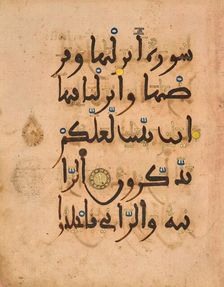 سورة أنزلنها وفر
ضنها وأنزلنا فيها
ءايت بينت لعلكم
تذكرون الزا
نية والزاني فاجلدوا